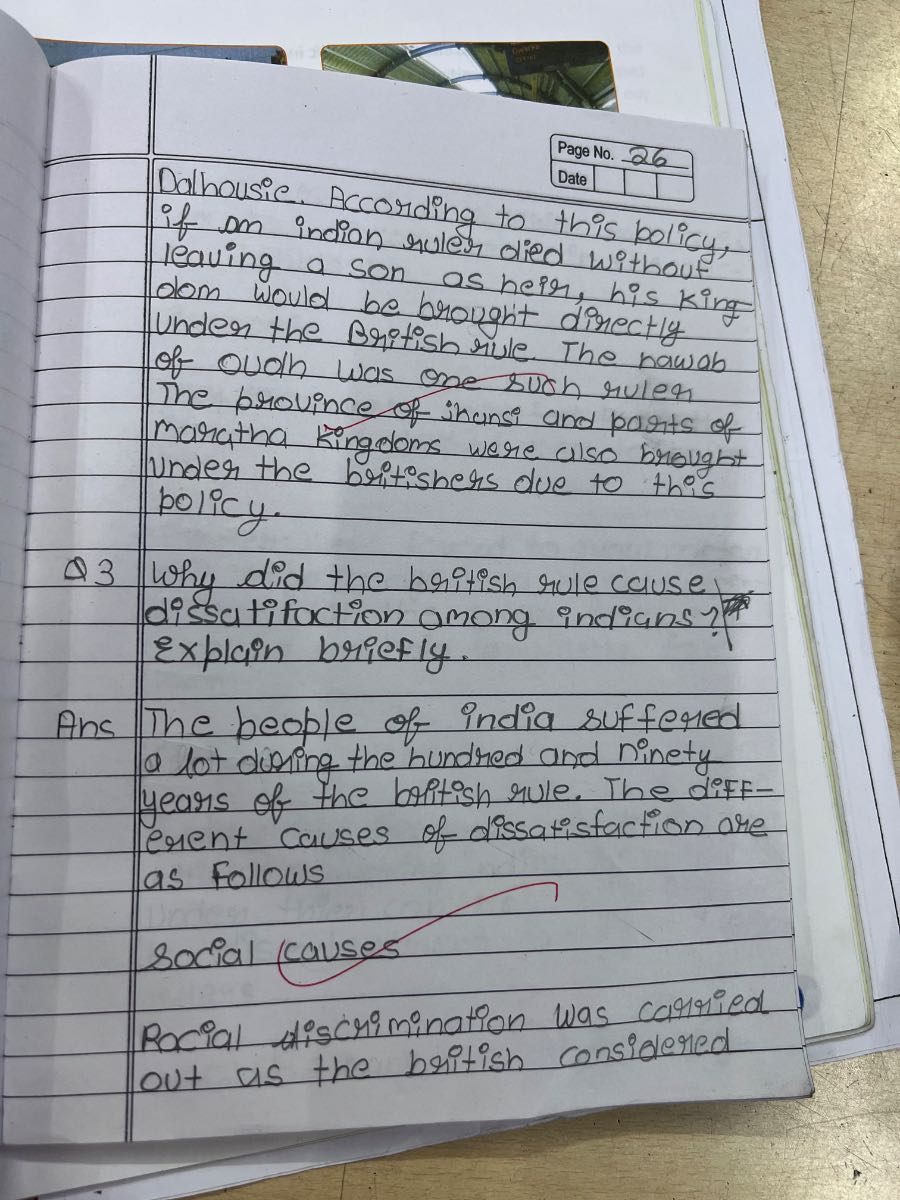 Page No. 26
Date
Dalhousie. According to this policy,
if an indian ruler died without
leaving a son as heir, his King
dom would be brought directly
under the British rule. The nawab
of oudh was one such ruler
The province of jhansi and parts of
maratha kingdoms were also brought
under the britishers due to this
policy.
Q3 Why did the british rule cause
dissatifaction among indians?
Explain briefly.
Ans The people of india suffered
a lot during the hundred and ninety
years of the british rule. The diff-
erent causes of dissatisfaction are
as follows
Social causes
Racial discrimination was carried
out as the british considered